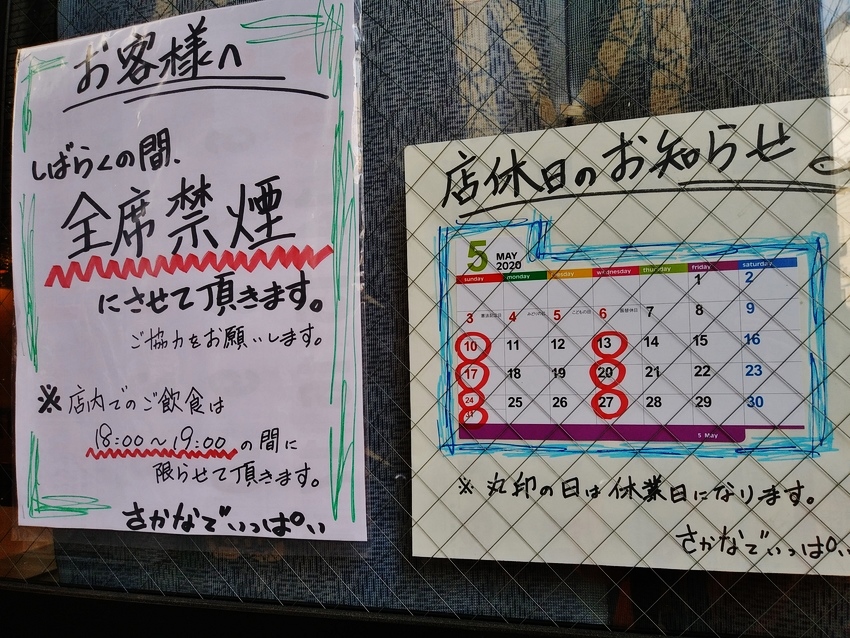 お客様へ
しばらくの間、
全席禁煙
にさせて頂きます。
ご協力をお願いします。
※店内でのご飲食は
18:00〜19:00の間に
限らせて頂きます。
さかなでいっぱい
店休日のお知らせ
5 MAY 2020
sunday monday tuesday wednesday thursday friday saturday
1 2
3 憲法記念日 4 みどりの日 5 こどもの日 6 振替休日 7 8 9
10 11 12 13 14 15 16
17 18 19 20 21 22 23
24 25 26 27 28 29 30
31
5 May
※丸印の日は休業日になります。
さかなでいっぱい